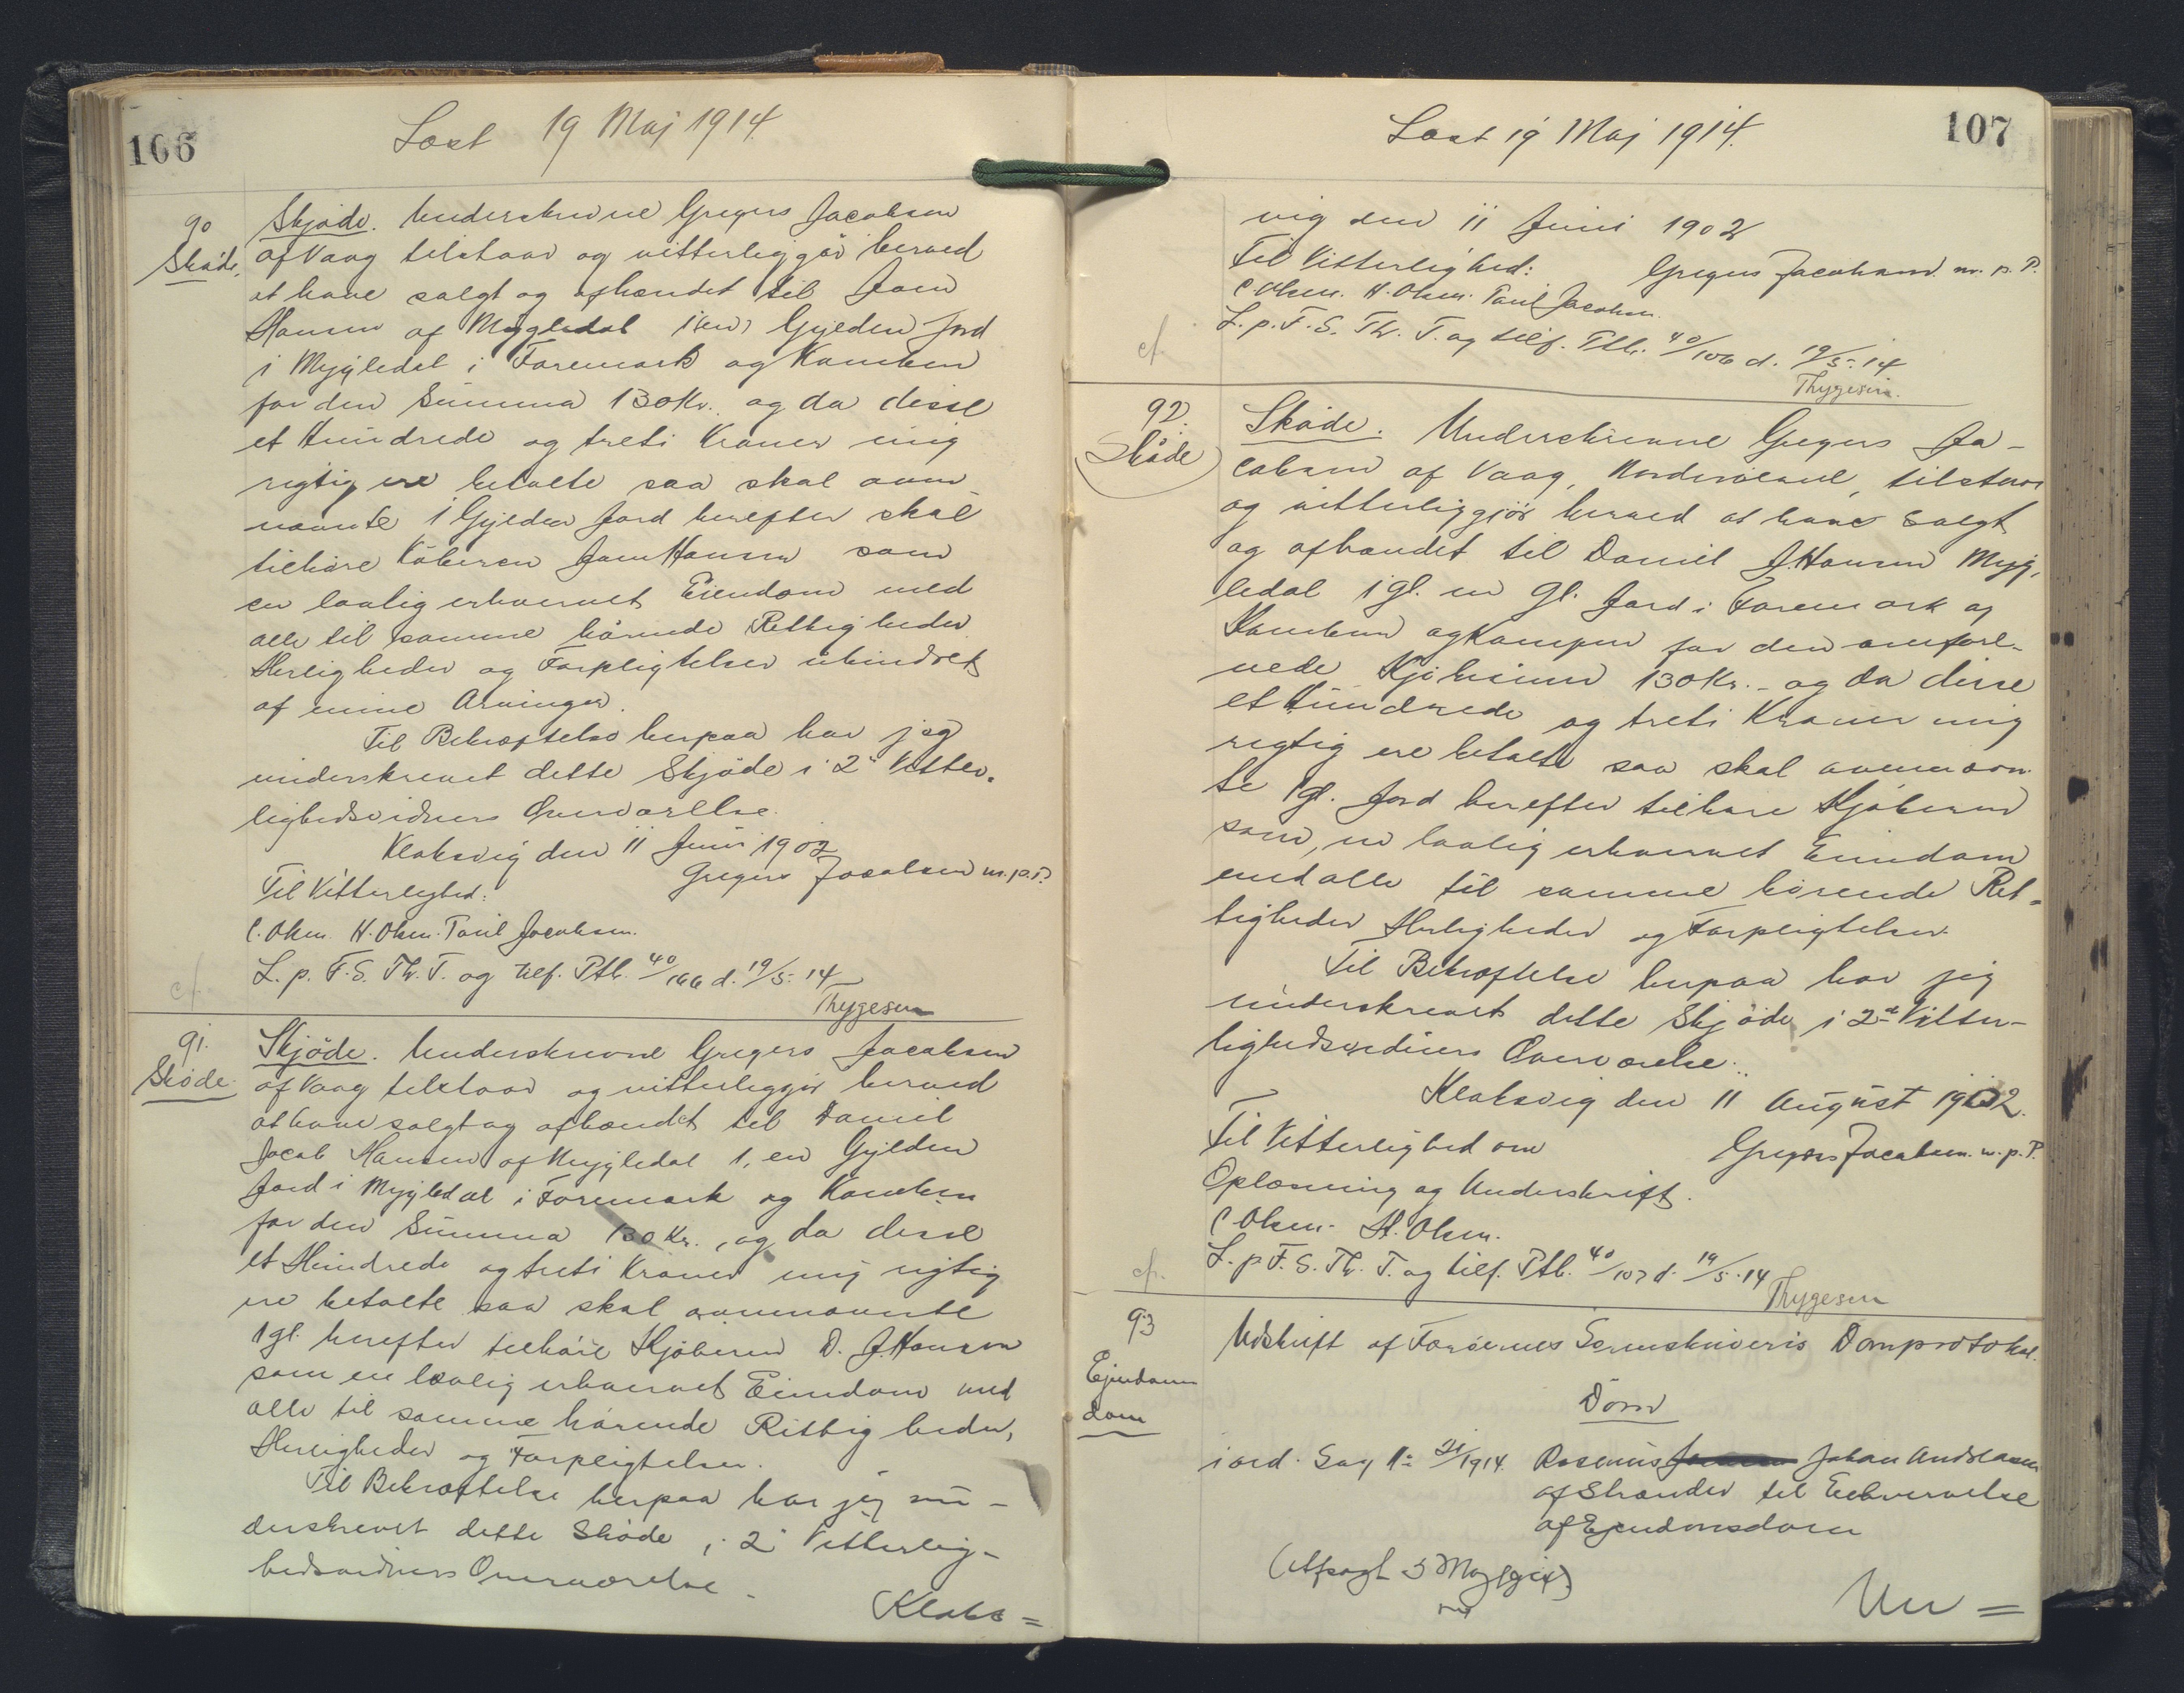 106
Læst 19 Maj 1914.
90
Skøde.
Skjøde. Underskrevne Gregers Jacobsen
af Vaag tilstaar og vitterliggør herved
at have salgt og afhændet til Joen
Hansen af Mygledal 1 (en) Gylden Jord
i Mygledal i Foremark og Kamben
for den Summa 130 Kr. og da disse
et Hundrede og treti Kroner mig
rigtig ere betalte saa skal oven
nævnte 1 Gylden Jord herefter skal
tilhøre Køberen Joen Hansen som
en lovlig erhvervet Eiendom med
alle til samme hørende Rettigheder
Herligheder og Forpligtelser uhindret
af mine Arvinger.
Til Bekræftelse herpaa har jeg
underskrevet dette Skjøde i 2 Vitter-
lighedsvidners Overværelse.
Klaksvig den 11 Juni 1902
Gregers Jacobsen m.p.P.
Til Vitterlighed:
C. Olsen. H. Olsen. Poul Jacobsen.
L. p. F. S. Th. T. og tilf. Ptb. 40/106 d. 19/5.14
Thygesen
cf.
91.
Skøde.
Skjøde. Underskrevne Gregers Jacobsen
af Vaag tilstaar og vitterliggjør herved
at have solgt og afhændet til Daniel
Jacob Hansen af Mygledal 1, en Gylden
Jord i Mygledal i Foremark og Kamben
for den Summa 130 Kr., og da disse
et Hundrede og treti Kroner mig rigtig
ere betalte saa skal ovennævnte
1 gl. herefter tilhøre Kjøberen D. J. Hansen
som en lovlig erhvervet Eiendom med
alle til samme hørende Rettigheder,
Herligheder og Forpligtelser.
Til Bekræftelse herpaa har jeg un-
derskrevet dette Skøde i 2 Vitterlig-
hedsvidners Overværelse.
Klaks=
107
Læst 19 Maj 1914.
vig den 11 Juni 1902
Til Vitterlighed:
Gregers Jacobsen m.p.P.
C. Olsen. H. Olsen. Poul Jacobsen.
L. p. F. S. Th. T. og tilf. Ptb. 40/106 d. 19/5.14
Thygesen.
cf.
92.
Skøde
Skøde. Underskrevne Gregers Ja-
cobsen af Vaag, Norderøerne, tilstaar
og vitterliggjør herved at have solgt
og afhændet til Daniel J. Hansen Myg-
ledal 1 gl. en gl. Jord i Foremark og
Kamben og Kampen for den omfore-
nede Kjøbesum 130 Kr. - og da disse
et Hundrede og treti Kroner mig
rigtig ere betalte saa skal ovennævn
te 1 gl. Jord herefter tilhøre Kjøberen
som, en lovlig erhvervet Eiendom
med alle til samme hørende Ret-
tigheder Herligheder og Forpligtelser.
Til Bekræftelse herpaa har jeg
underskrevet dette Skjøde i 2de Vitter-
lighedsvidners Overværelse.
Klaksvig den 11 August 1902.
Til Vitterlighed om
Gregers Jacobsen. m.p.P.
Oplæsning og Underskrift.
C Olsen. H. Olsen.
L. p. F. S. Th. T. og tilf. Ptb. 40/107 d. 19/5.14
Thygesen
cfr.
93
Ejendoms
dom
Udskrift af Færøernes Sorenskriveris Domprotokol.
Dom
i ord. Sag No 21/1914. Rasmus Johan Andreasen
af Strænder til Erhvervelse
af Ejendomsdom
(Afsagt 5 Maj 1914)
Un=